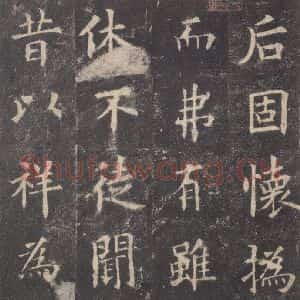 后固懷撝
而弗有雖
休不徒聞
昔以祥為
Shufawang.cn